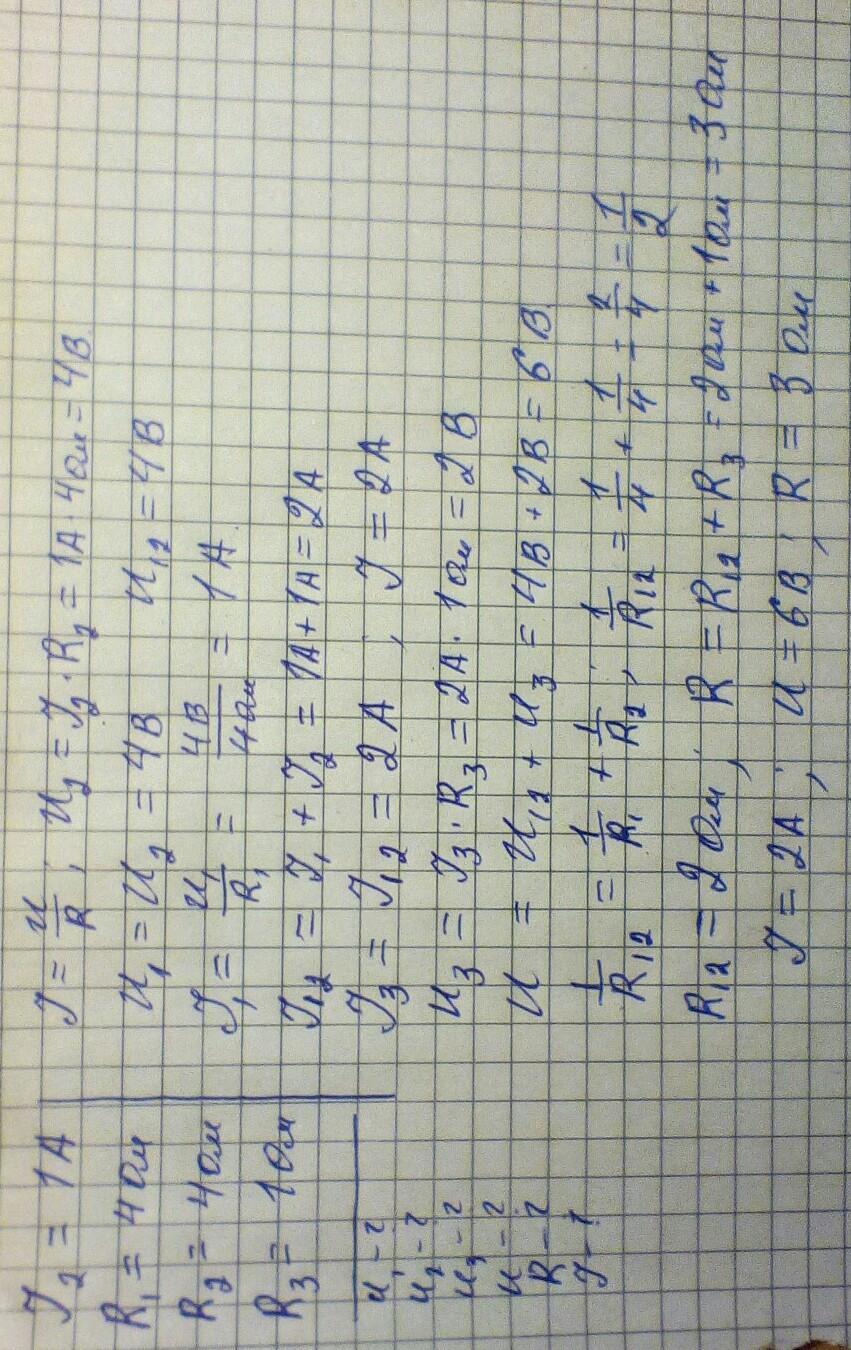 I₂ = 1А
R₁ = 4 Ом
R₂ = 4 Ом
R₃ = 1 Ом
U₁ – ?
U₂ – ?
U₃ – ?
U – ?
R – ?
I – ?
I = U/R ; U₂ = I₂ · R₂ = 1А · 4Ом = 4В
U₁ = U₂ = 4В U₁₂ = 4В
I₁ = U₁/R₁ = 4В/4Ом = 1А
I₁₂ = I₁ + I₂ = 1А + 1А = 2А
I₃ = I₁₂ = 2А , I = 2А
U₃ = I₃ · R₃ = 2А · 1Ом = 2В
U = U₁₂ + U₃ = 4В + 2В = 6В
1/R₁₂ = 1/R₁ + 1/R₂ ; 1/R₁₂ = 1/4 + 1/4 = 2/4 = 1/2
R₁₂ = 2 Ом ; R = R₁₂ + R₃ = 2Ом + 1Ом = 3Ом
I = 2А ; U = 6В ; R = 3 Ом